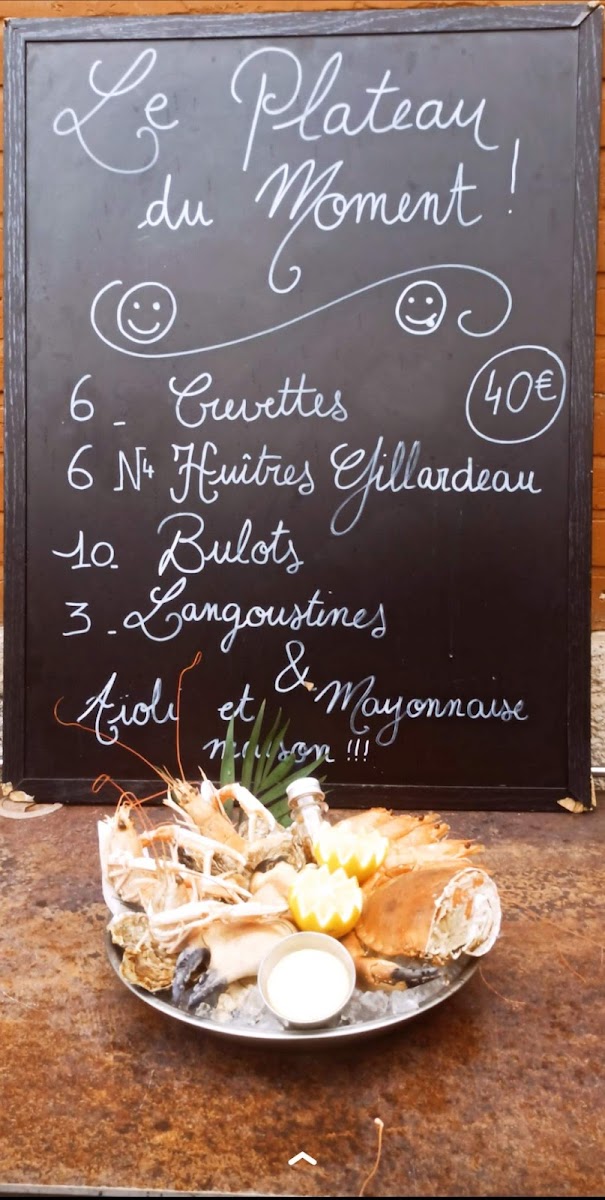 Le Plateau
du Moment !
40€
6 - Crevettes
6 N4 Huîtres Gillardeau
10. Bulots
3 - Langoustines
&
Aïoli et Mayonnaise
maison !!!